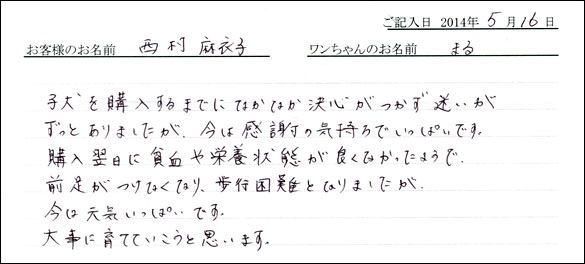 ご記入日 2014年 5月16日
お客様のお名前 西村 麻衣子 ワンちゃんのお名前 まる
子犬を購入するまでになかなか決心がつかず迷いが
ずっとありましたが、今は感謝の気持ちでいっぱいです。
購入翌日に貧血や栄養状態が良くなかったようで、
前足がつけなくなり、歩行困難となりましたが、
今は元気いっぱいです。
大事に育てていこうと思います。